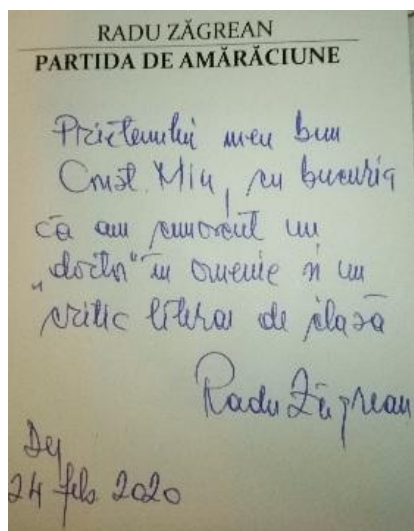 RADU ZĂGREAN
PARTIDA DE AMĂRĂCIUNE
Prietenului meu bun
Const. Miu, cu bucuria
că am cunoscut un
„doctor” în omenie și un
critic literar de clasă
Radu Zăgrean
Dej
24 feb. 2020